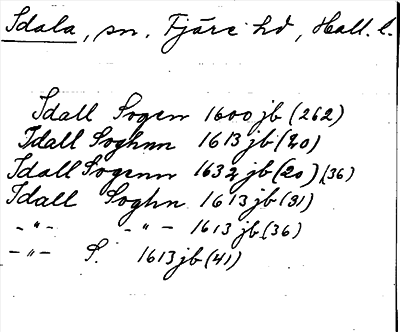 Idala, sn. Fjäre hd, Hall. l.
Idall Sogen 1600 jb (262)
Idall Soghnn 1613 jb (20)
Idall Sogenn 1632 jb (20), (36)
Idall Soghn 1613 jb (31)
-"- -"- 1613 jb (36)
-"- S. 1613 jb (41)